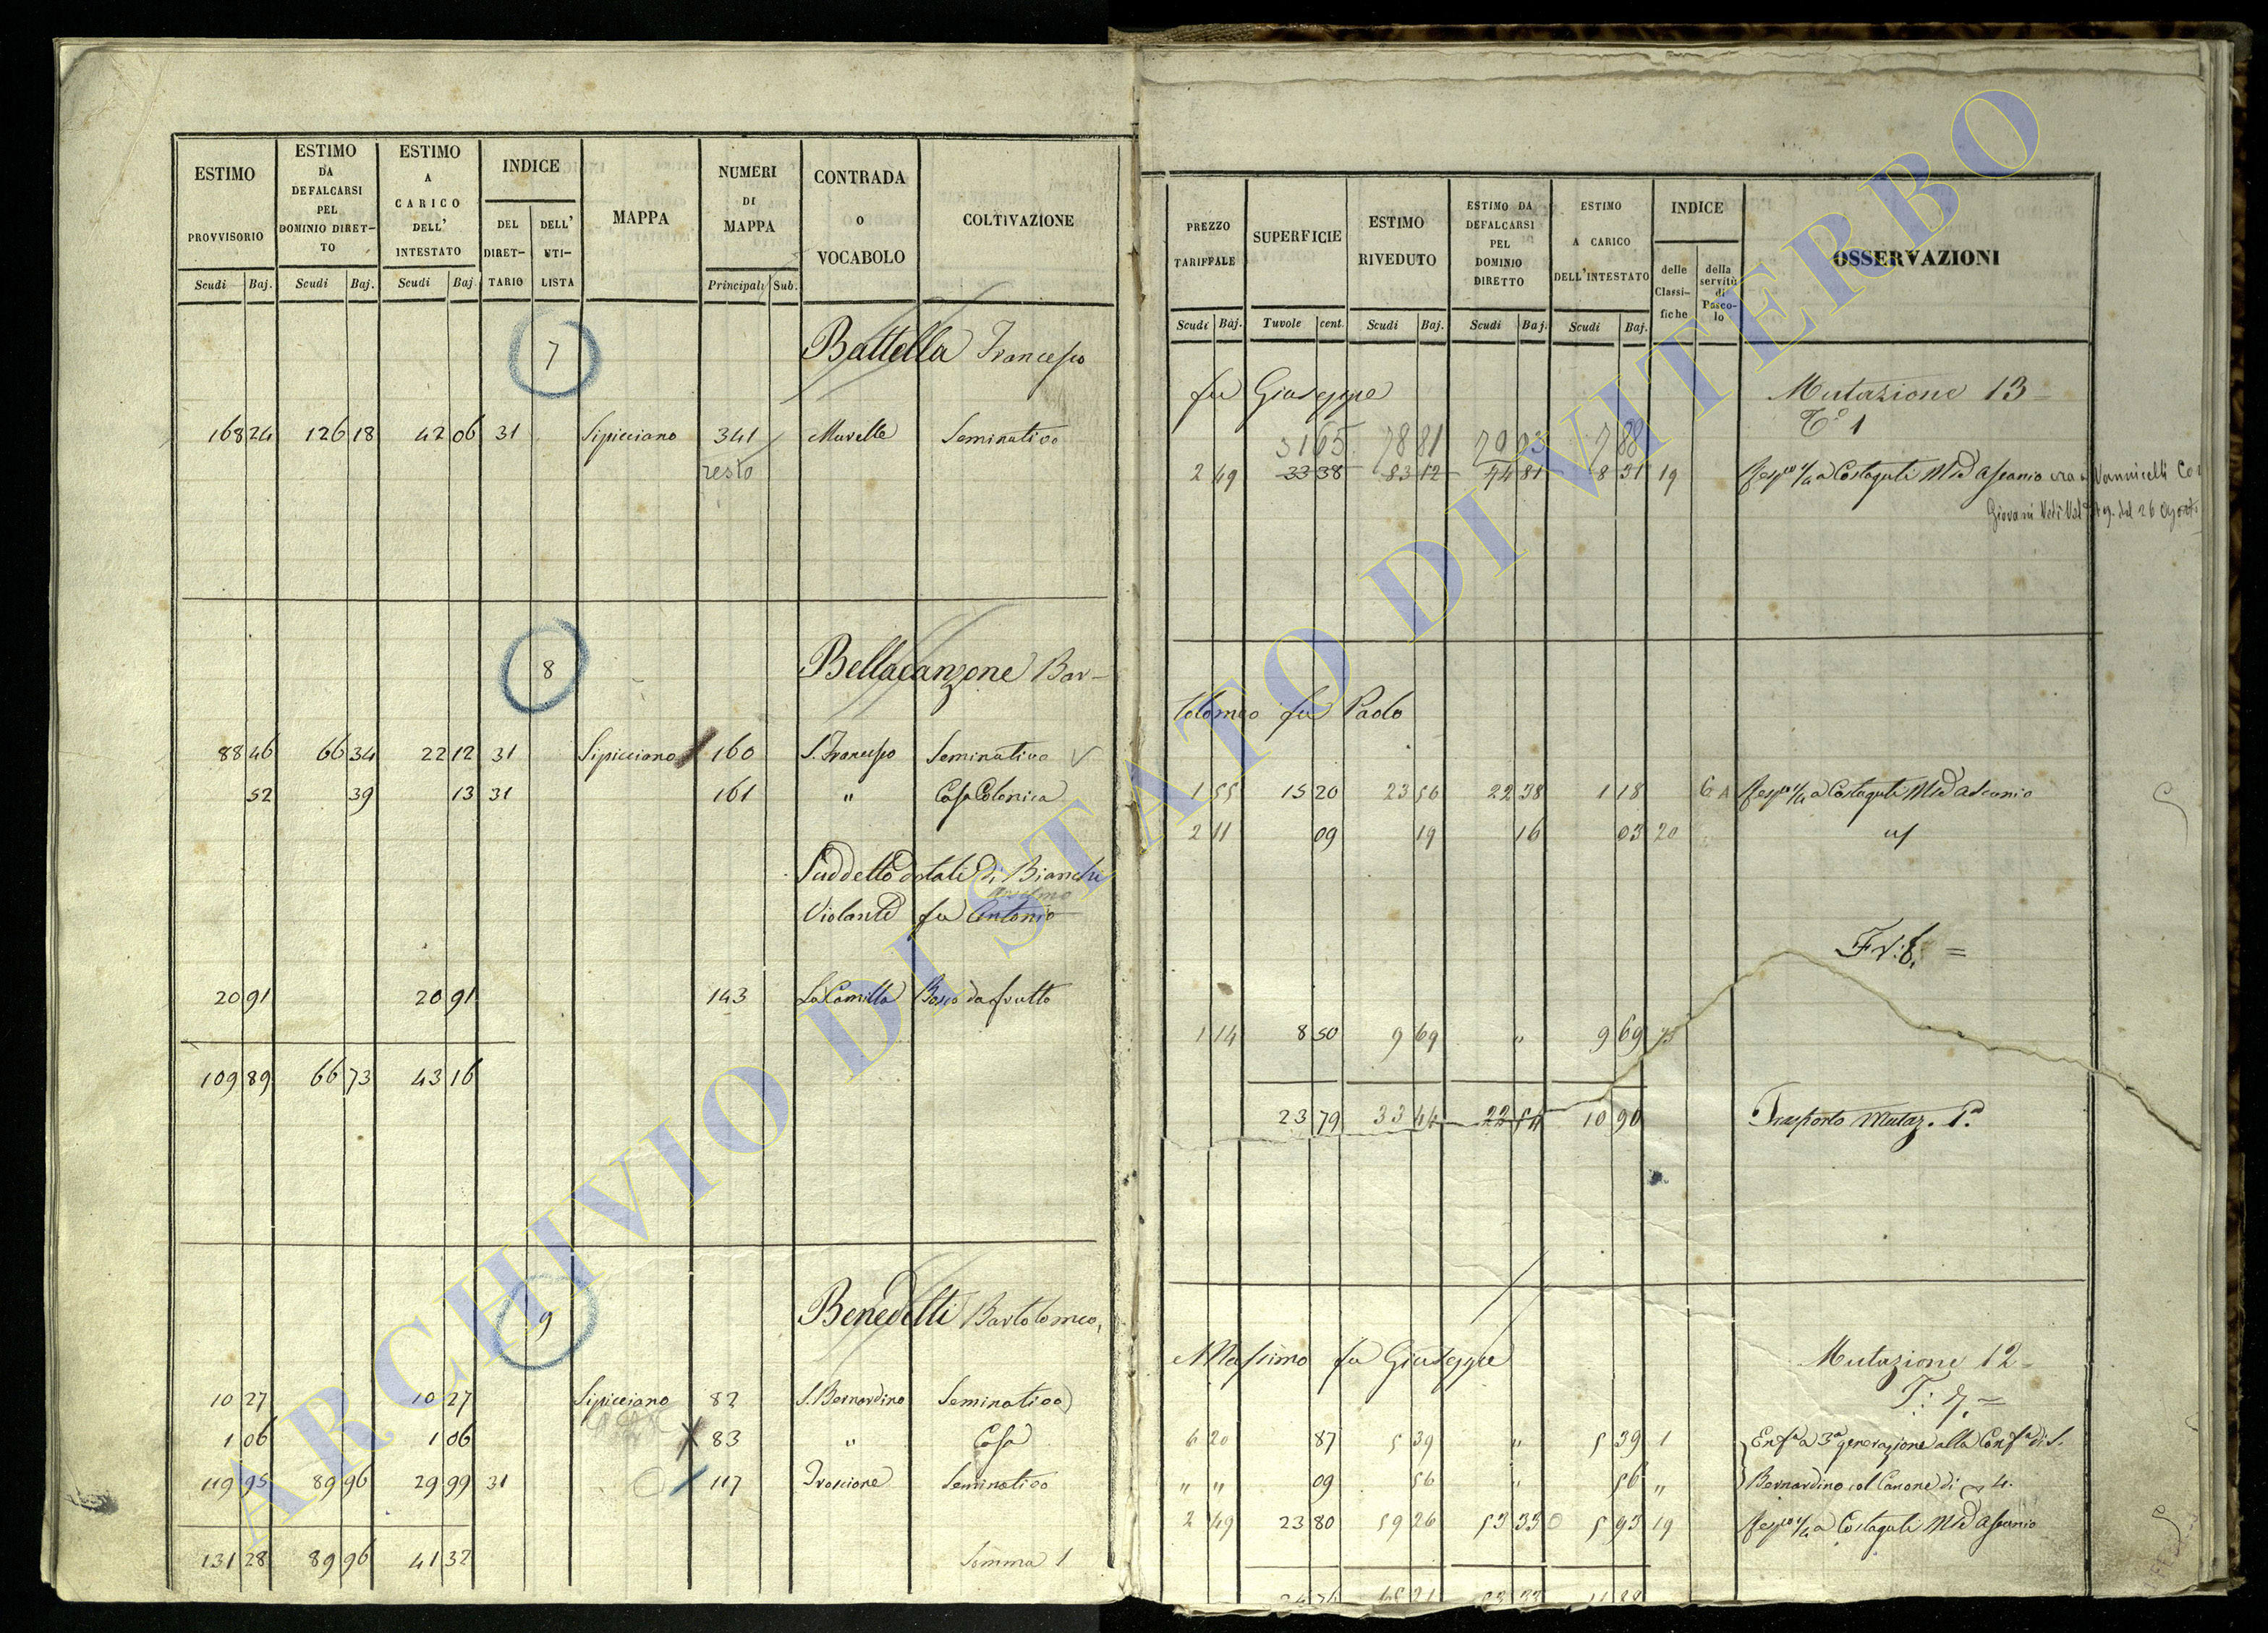 ESTIMO PROVVISORIO
Scudi Baj.
ESTIMO DA DEFALCARSI PEL DOMINIO DIRETTO
Scudi Baj.
ESTIMO A CARICO DELL' INTESTATO
Scudi Baj
INDICE
DEL DIRETTARIO
DELL' UTILISTA
MAPPA
NUMERI DI MAPPA
Principali Sub.
CONTRADA o VOCABOLO
COLTIVAZIONE
7 Battella Francesco
168 24 126 18 42 06 31 Sipicciano 341 Murelle Seminativo
resto
8 Bellacanzone Bar-
88 46 66 34 22 12 31 Sipicciano 160 S. Francesco Seminativo
52 39 13 31 161 " Casa Colonica
Suddetto dotali di Bianchi
Violante fu Antonio
20 91 20 91 143 La Camilla Bosco da frutto
109 89 66 73 43 16
9 Benedetti Bartolomeo,
10 27 10 27 Sipicciano 82 S. Bernardino Seminativo
1 06 1 06 83 " Casa
119 95 89 96 29 99 31 117 Troscione Seminativo
131 28 89 96 41 32 Somma 1
PREZZO TARIFFALE
Scudi Baj.
SUPERFICIE
Tavole cent.
ESTIMO RIVEDUTO
Scudi Baj.
ESTIMO DA DEFALCARSI PEL DOMINIO DIRETTO
Scudi Baj.
ESTIMO A CARICO DELL'INTESTATO
Scudi Baj.
INDICE
delle Classifiche
della servitù di Pascolo
OSSERVAZIONI
fu Giuseppe Mutazione 13
T.° 1
31 65 78 81 70 93 7 88
2 49 33 38 83 12 74 81 8 31 19 a Costaguti Ascanio ora a Vannicelli
Giovanni del 26 Agosto
tolomeo fu Paolo
1 55 15 20 23 56 22 38 1 18 6 A a Costaguti Ascanio
2 11 09 19 16 03 20
1 14 8 50 9 69 " 9 69
23 79 33 44 22 54 10 90 Trasporto Mutaz. 1.a
Massimo fu Giuseppe Mutazione 12
6 20 87 5 39 " 5 39 1 Enf.a a 3.a generazione alla Conf.a di S.
" " 09 56 " 56 " Bernardino col Canone di
2 49 23 80 59 26 53 33 5 93 19 a Costaguti Ascanio
24 76 65 21 53 33 11 88
ARCHIVIO DI STATO DI VITERBO